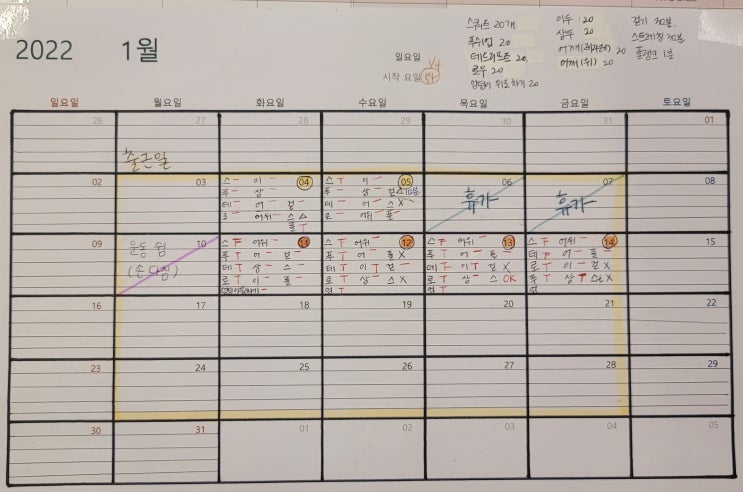 2022 1월
스쿼트 20개
푸쉬업 20
데드리프트 20.
로우 20
양팔 뒤로차기 20
이두 20
삼두 20
어깨(레터럴) 20
어깨(위) 20
걷기 30분.
스트레칭 30분
플랭크 1분
일요일
시작 요일 화
1/4
일요일 월요일 화요일 수요일 목요일 금요일 토요일
26 27 28 29 30 31 01
출근일
02 03 04 05 06 07 08
스 이
푸 상
데 어 걷
로 어위 스
플
스 이
푸 상 걷
데 어 스 X
로 어위 플
휴가
휴가
09 10 11 12 13 14 15
운동 쉼
(손 다침)
스 어위
푸 T 어 걷
데 T 삼 스
로 T 이 플
스 어위
푸 T 어 플 X
데 T 이 T 걷
로 T 삼 스 X
스 어위
푸 T 어 플
데 이 T 걷 X
로 T 삼 스 OK
스 어위
데 어 플
로 T 이 걷 X
푸 T 삼 T 스 X
16 17 18 19 20 21 22
23 24 25 26 27 28 29
30 31 01 02 03 04 05